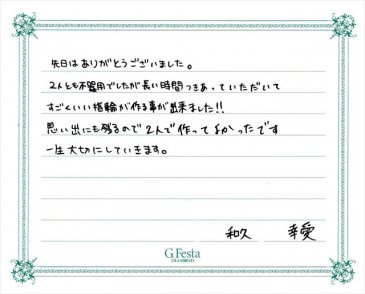 先日はありがとうございました。
2人とも不器用でしたが長い時間つきあっていただいて
すごくいい指輪が作る事が出来ました!!
思い出にも残るので2人で作ってよかったです
一生大切にしていきます。
和久 幸愛
G.Festa
DIAMOND